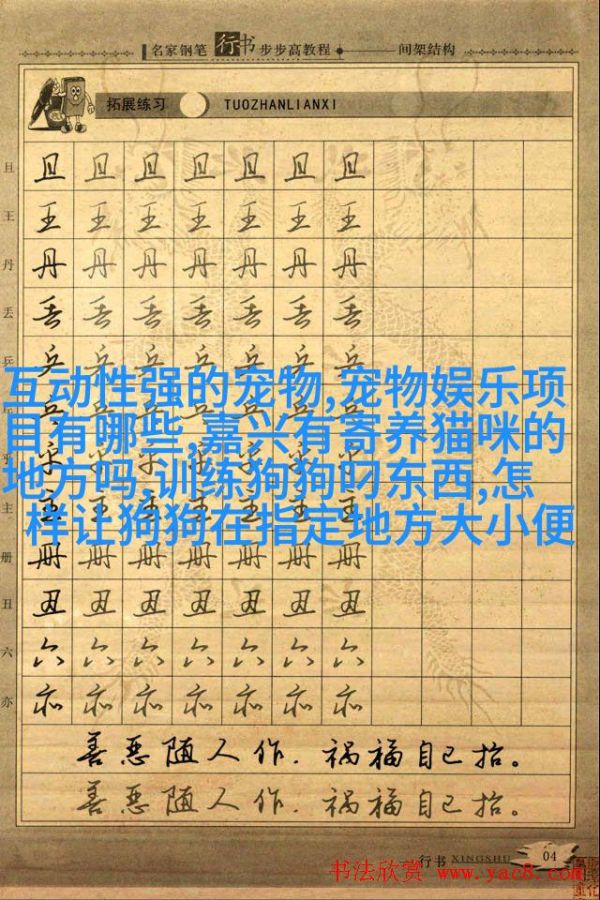 名家钢笔行书步步高教程 间架结构
拓展练习 TUOZHANLIANXI
且 且 且 且 且 且 且 且
王 王 王 王 王 王 王 王
丹 丹 丹 丹 丹 丹 丹 丹
丢 丢 丢 丢 丢 丢 丢 丢
乒 乒 乒 乒 乒 乒 乒 乒
互动性强的宠物,宠物娱乐项
目有哪些,嘉兴有寄养猫咪的
地方吗,训练狗狗叼东西,怎
样让狗狗在指定地方大小便
主 主 主 主 主 主 主 主
册 册 册 册 册 册 册 册
丑 丑 丑 丑 丑 丑 丑 丑
六 六 六 六 六 六 六 六
亦 亦 亦 亦 亦 亦 亦 亦
善恶随人作.祸福自己招。
善恶随人作.祸福自己招。
行书 XINGSHU 04
书法欣赏 www.yac8.com